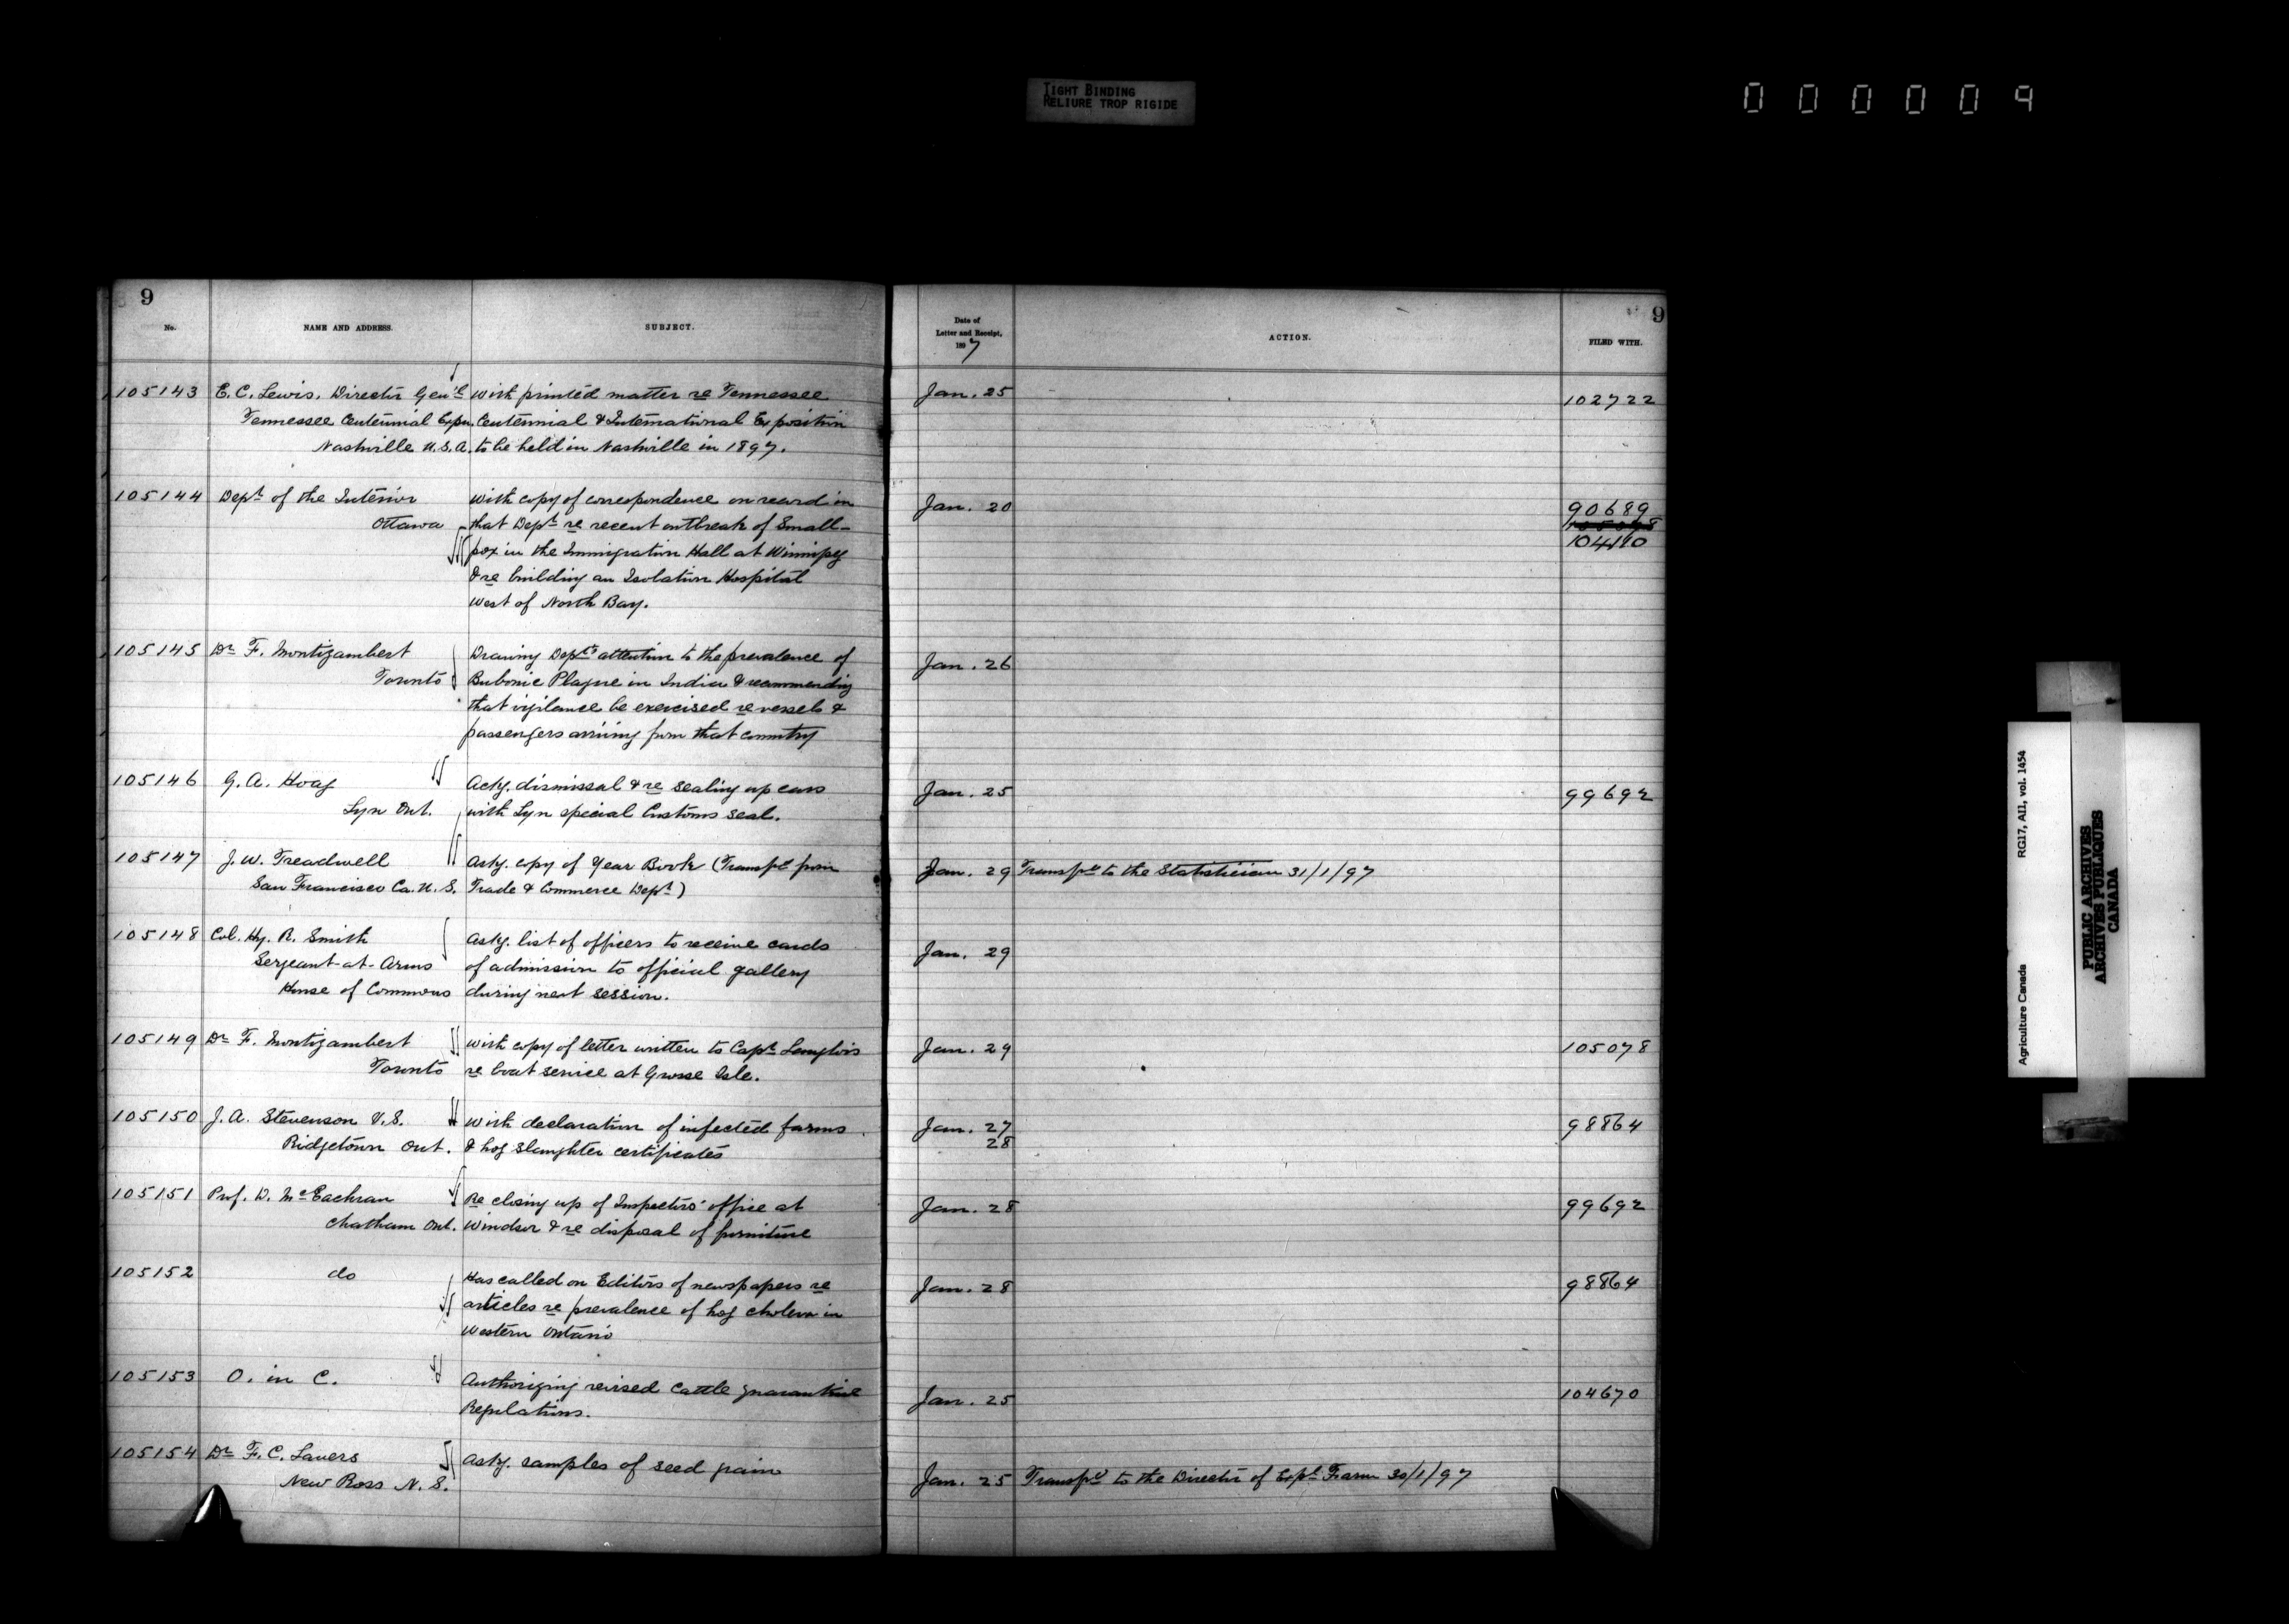 TIGHT BINDING
RELIURE TROP RIGIDE
000009
9
No.
NAME AND ADDRESS.
SUBJECT.
Date of
Letter and Receipt,
1897
ACTION.
FILED WITH.
9
105143 E. C. Lewis, Director Gen'l With printed matter re Tennessee Jan. 25 102722
Tennessee Centennial Expn. Centennial & International Exposition
Nashville U.S.A. to be held in Nashville in 1897.
105144 Dept of the Interior With copy of correspondence on record in Jan. 20 90689
Ottawa that Dept re recent outbreak of Small-
pox in the Immigration Hall at Winnipeg 104110
& re building an Isolation Hospital
West of North Bay.
105145 Dr F. Montizambert Drawing Dept's attention to the prevalence of Jan. 26
Toronto Bubonic Plague in India & recommending
that vigilance be exercised re vessels &
passengers arriving from that country
105146 G. A. Hoag Ackg. dismissal & re sealing up cars Jan. 25 99692
Lyn Ont. with Lyn special Customs seal.
105147 J. W. Treadwell Askg. copy of Year Book (Transfd from Jan. 29 Transfd to the Statistician 31/1/97
San Francisco Ca. U. S. Trade & Commerce Dept)
105148 Col. Hy. R. Smith Askg. list of officers to receive cards Jan. 29
Sergeant-at-Arms of admission to official gallery
House of Commons during next session.
105149 Dr F. Montizambert With copy of letter written to Capt Langlois Jan. 29 105078
Toronto re boat service at Grosse Isle.
105150 J. A. Stevenson V.S. With declaration of infected farms Jan. 27 98864
Ridgetown Ont. & hog slaughter certificates 28
105151 Prof. D. McEachran Re closing up of Inspectors' office at Jan. 28 99692
Chatham Ont. Windsor & re disposal of furniture
105152 do Has called on Editors of newspapers re Jan. 28 98864
articles re prevalence of hog cholera in
Western Ontario
105153 O. in C. Authorizing revised Cattle quarantine Jan. 25 104670
Regulations.
105154 Dr F. C. Lavers Askg. samples of seed grain Jan. 25 Transfd to the Director of Expl Farm 30/1/97
New Ross N. S.
Agriculture Canada RG17, AI1, vol. 1454
PUBLIC ARCHIVES
ARCHIVES PUBLIQUES
CANADA